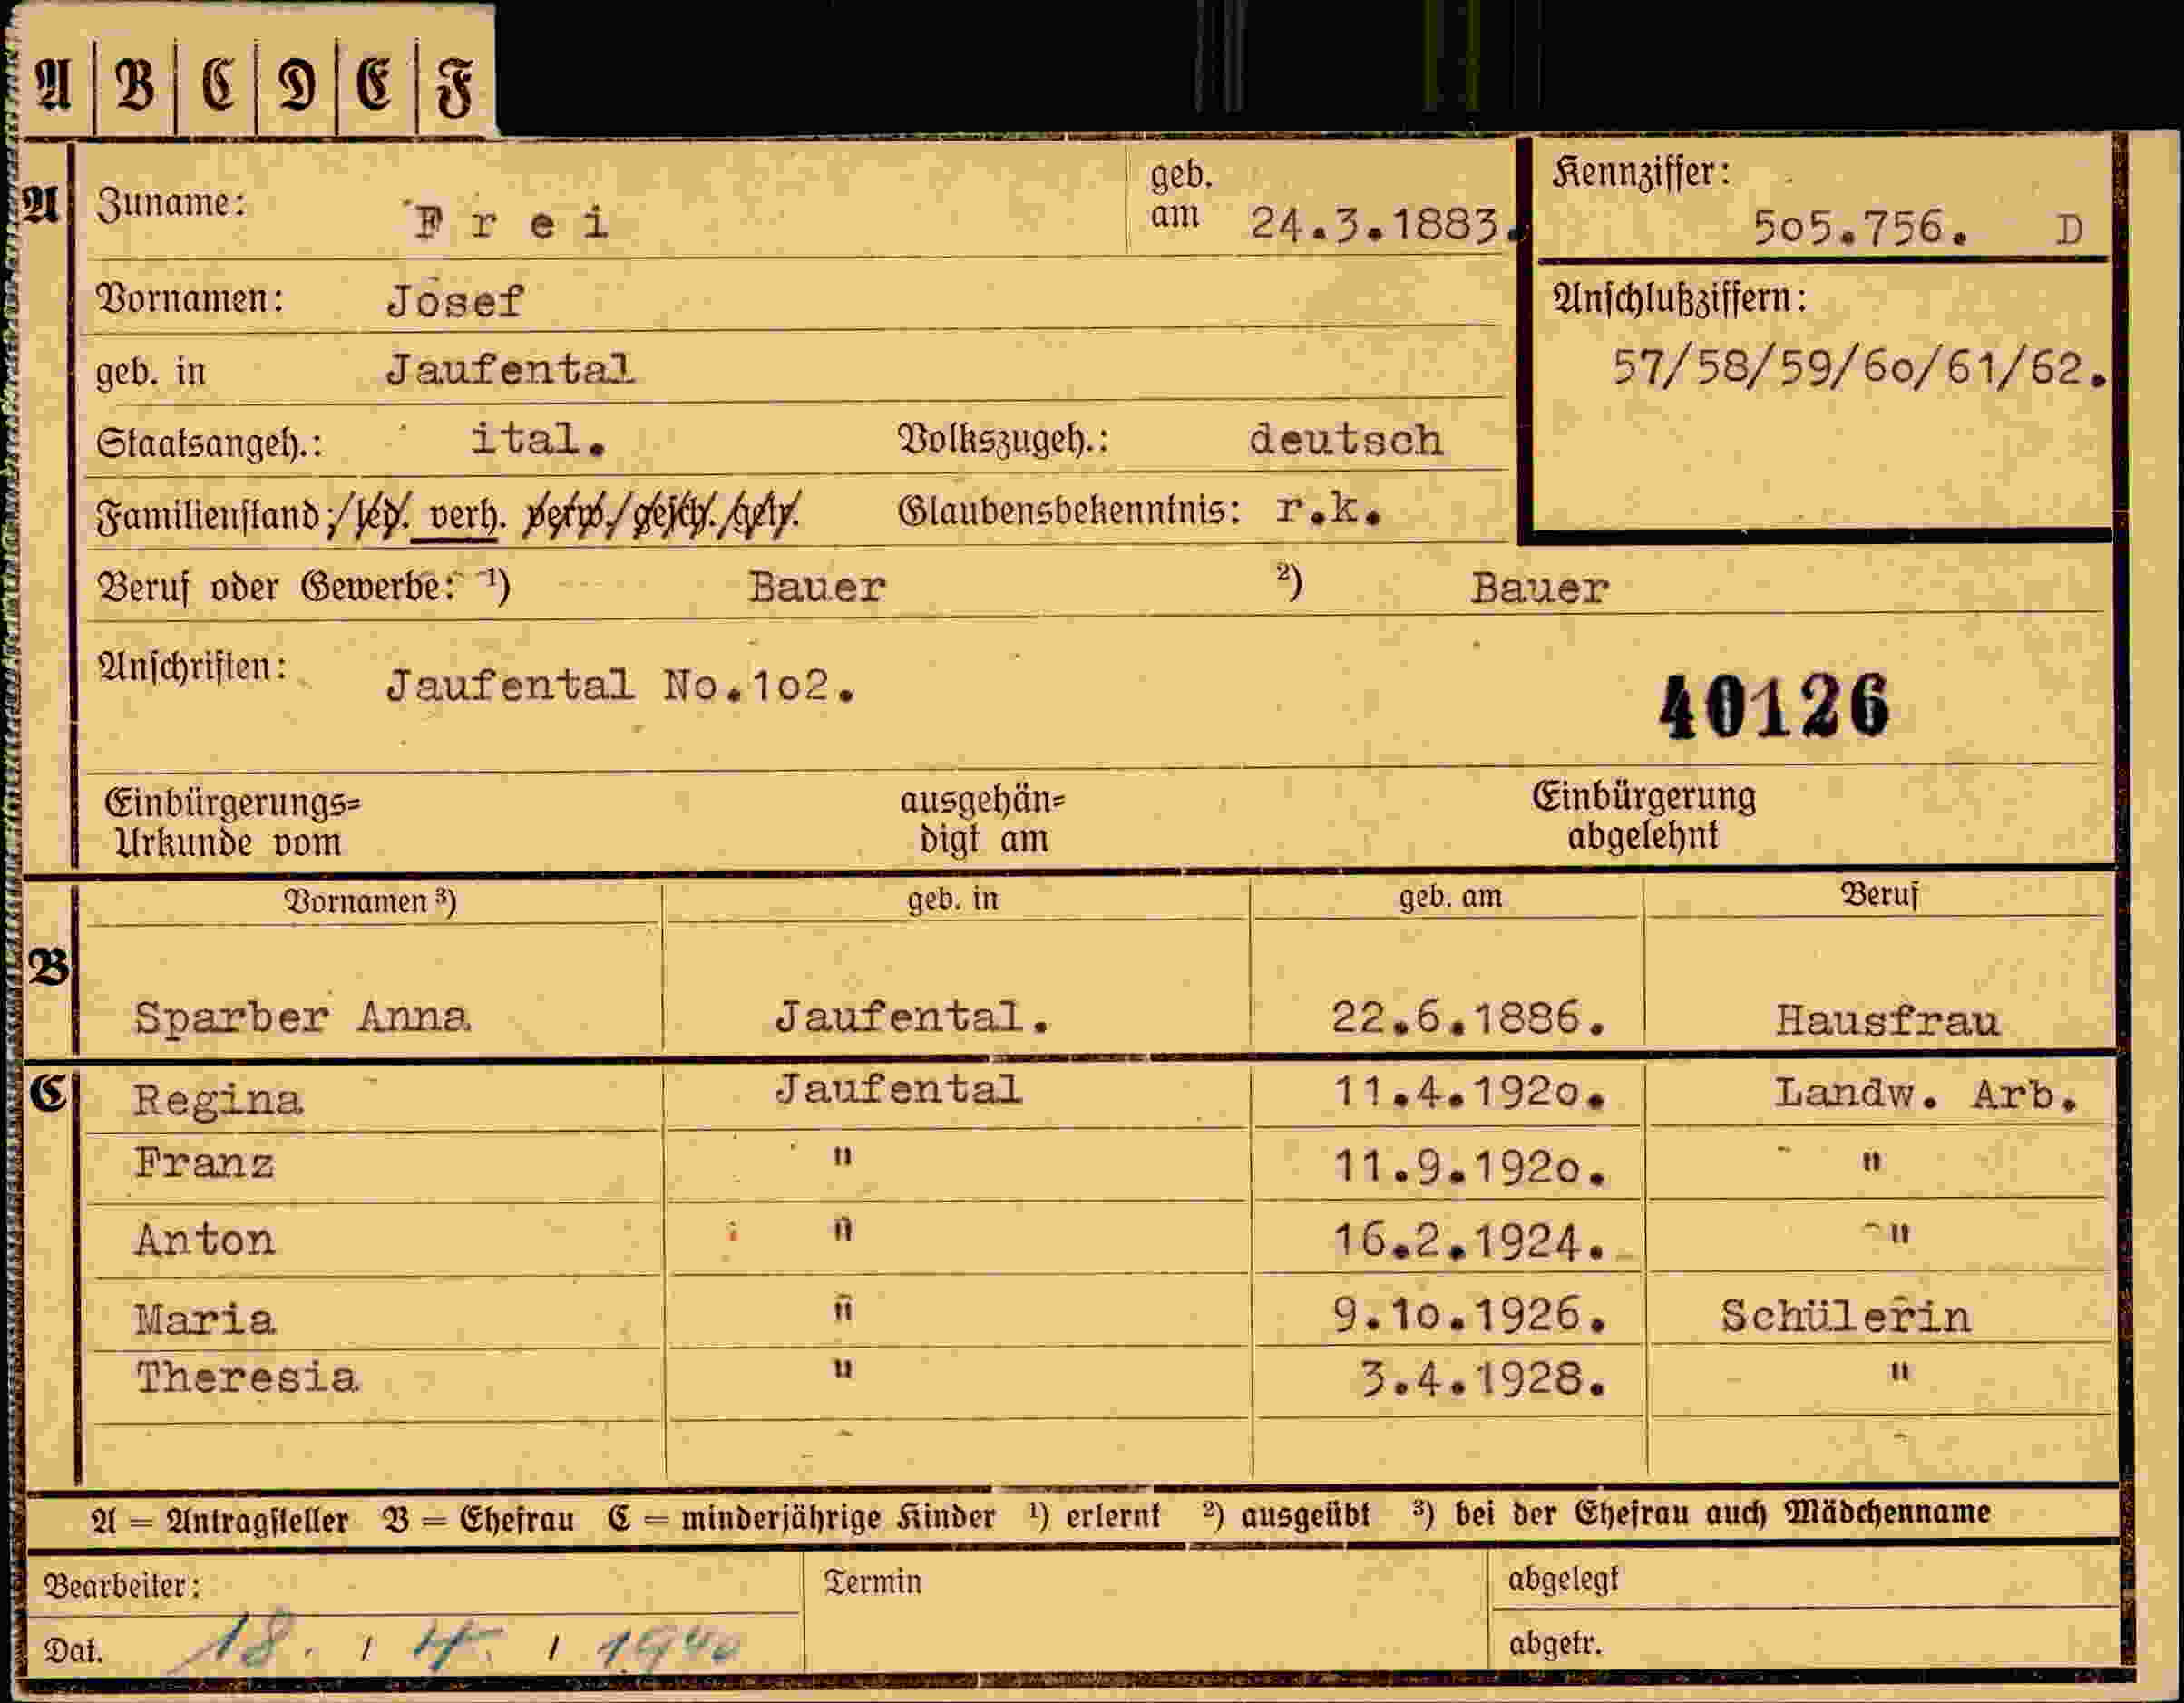 A B C D E F
A Zuname: Frei geb. am 24.3.1883. Kennziffer: 505.756. D
Vornamen: Josef Anschlußziffern:
geb. in Jaufental 57/58/59/60/61/62.
Staatsangeh.: ital. Volkszugeh.: deutsch
Familienstand: led. verh. verw. gesch. getr. Glaubensbekenntnis: r.k.
Beruf oder Gewerbe: ¹) Bauer ²) Bauer
Anschriften: Jaufental No.102. 40126
Einbürgerungs= ausgehän= Einbürgerung
Urkunde vom digt am abgelehnt
Vornamen ³) geb. in geb. am Beruf
B
Sparber Anna Jaufental. 22.6.1886. Hausfrau
C Regina Jaufental 11.4.1920. Landw. Arb.
Franz " 11.9.1920. "
Anton " 16.2.1924. "
Maria " 9.10.1926. Schülerin
Theresia " 3.4.1928. "
A = Antragsteller B = Ehefrau C = minderjährige Kinder ¹) erlernt ²) ausgeübt ³) bei der Ehefrau auch Mädchenname
Bearbeiter: Termin abgelegt
Dat. 18. / 4. / 1940 abgetr.